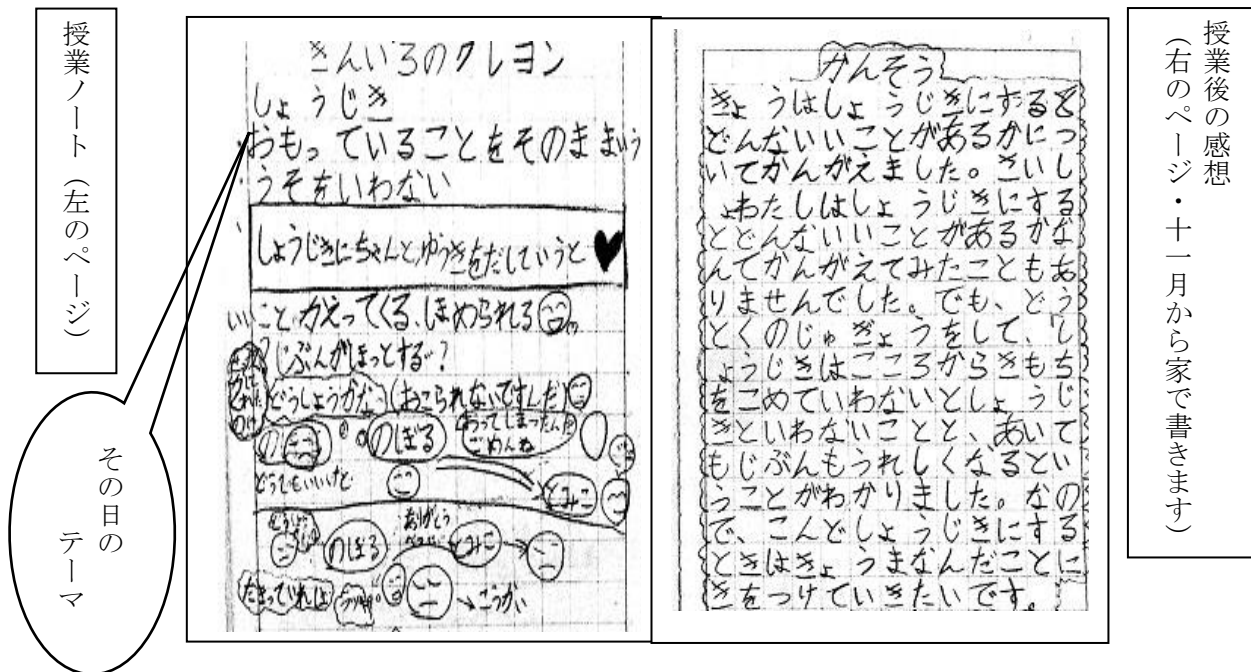 授業後の感想
（右のページ・十一月から家で書きます）
かんそう
きょうはしょうじきにすると
どんないいことがあるかにつ
いてかんがえました。さいし
ょわたしはしょうじきにする
とどんないいことがあるかな
んてかんがえてみたこともあ
りませんでした。でも、どう
とくのじゅぎょうをして、「し
ょうじきはこころからきもち
をこめていわないとしょうじ
きといわないことと、あいて
もじぶんもうれしくなるとい
うことがわかりました。なの
で、こんどしょうじきにする
ときはきょうまなんだことに
きをつけていきたいです。
きんいろのクレヨン
しょうじき
おもっていることをそのままいう
うそをいわない
しょうじきにちゃんとゆうきをだしていうと♥
いいことかえってくる、ほめられる
じぶんがほっとする？
どうしようかな（おこられないですんだ）
の
のぼる
おってしまったんだ
ごめんね
どうでもいいけど
とみこ
のぼる
ありがとう
とみこ
だまっていれば
→ごうかい
授業ノート（左のページ）
その日の
テーマ